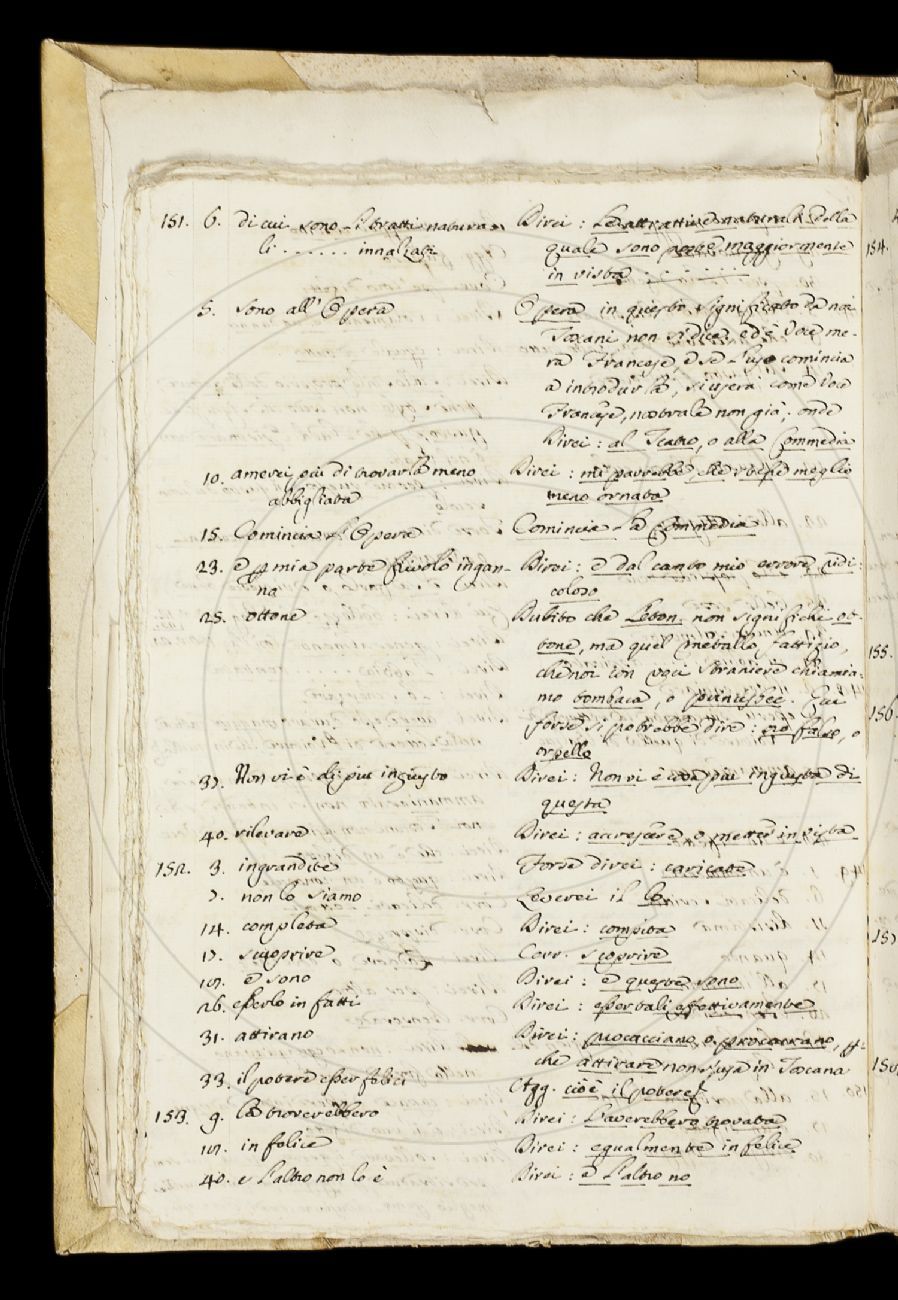 151. 6. di cui sono li tratti natura= Direi: Le attrattive naturali della
li . . . . . . innalzati quale sono maggiormente
in vista . . . . .
5. sono all' Opera Opera in questo significato da noi
Toscani non si dice, ed è voce me=
ra Francese, e se l'uso comincia
a introdurla, si userà come voce
Francese, nostrale non già; onde
Direi: al Teatro, o alla Commedia
10. amerei più di trovarla meno Direi: mi parrebbe, che stesse meglio
abbigliata meno ornata
15. Comincia l'Opera Comincia la Commedia
23. e p mia parte frivolo ingan= Direi: e dal canto mio errore ridi=
na coloso
25. ottone Dubito che Leton non significhi ot=
tone, ma quel metallo fattizio,
che noi con voci straniere chiamia=
mo tombaca, o princisbec. Qui
forse si potrebbe dire: oro falso, o
orpello
37. Non vi è di più ingiusto Direi: Non vi è cosa più ingiusta di
questa
40. rilevare Direi: accrescere, o metter in vista
152. 3. ingrandite Forse direi: caricate
7. non lo siamo Leverei il lo
14. completa Direi: compita
17. scuoprire Corr. scoprire
19. e sono Direi: e queste sono
26. esserlo in fatti Direi: esser tali effettivamente
31. attirano Direi: procacciano, o procurano,
che attirare non s'usa in Toscana
33. il potere esser felici Agg. cioè il potere
153. 9. la troverebbero Direi: L'averebbero trovata
19. infelice Direi: egualmente infelice
40. e l'altro non lo è Direi: e l'altro no
154.
155.
156.
157